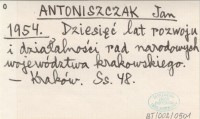 ANTONISZCZAK Jan
1954. Dziesięć lat rozwoju
i działalności rad narodowych
województwa krakowskiego.
— Kraków. Ss. 48.